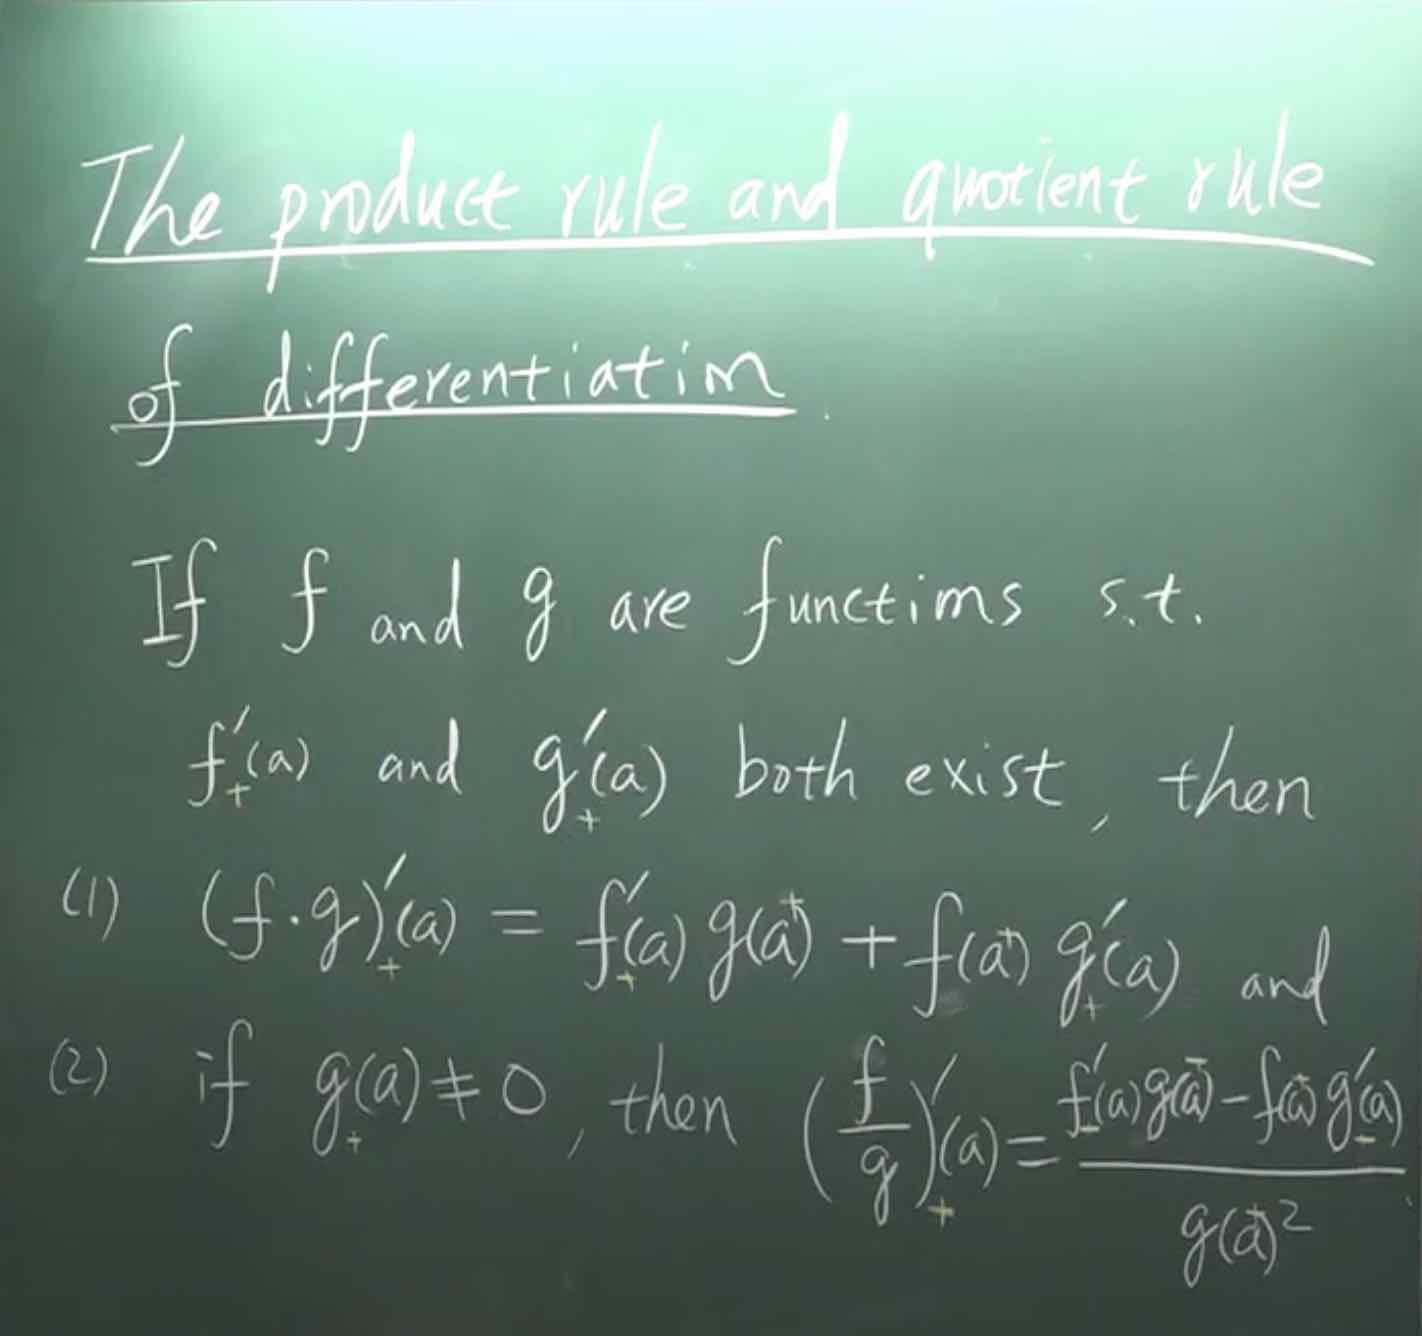 The product rule and quotient rule
of differentiation.
If f and g are functions s.t.
f₊′(a) and g₊′(a) both exist, then
(1) (f·g)₊′(a) = f₊′(a) g(a⁺) + f(a⁺) g₊′(a) and
(2) if g₊(a) ≠ 0, then (f/g)₊′(a) = (f₋′(a)g(a⁻) − f(a⁺)g₋′(a)) / g(a⁺)²